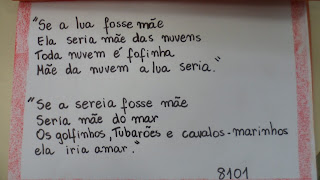 "Se a lua fosse mãe
Ela seria mãe das nuvens
Toda nuvem é fofinha
Mãe da nuvem a lua seria."
"Se a sereia fosse mãe
Seria mãe do mar
Os golfinhos, Tubarões e cavalos-marinhos
ela iria amar."
8101